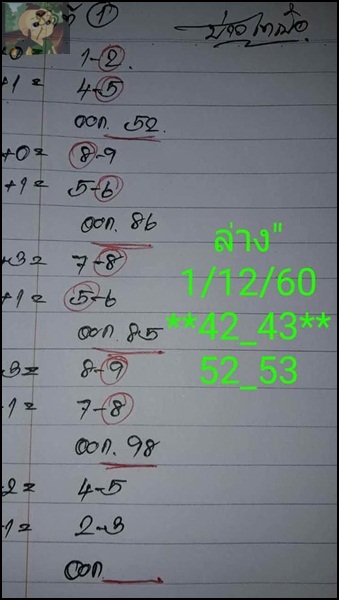 ที่ 1
+0= 1-2.
+1= 4-5
ออก. 52.
+0= 8-9
+1= 5-6
ออก. 86
+3= 7-8
+1= 5-6
ออก. 85
3= 8-9
-1= 7-8
ออก. 98
2= 4-5
1= 2-3
ออก
ล่าง"
1/12/60
**42_43**
52_53